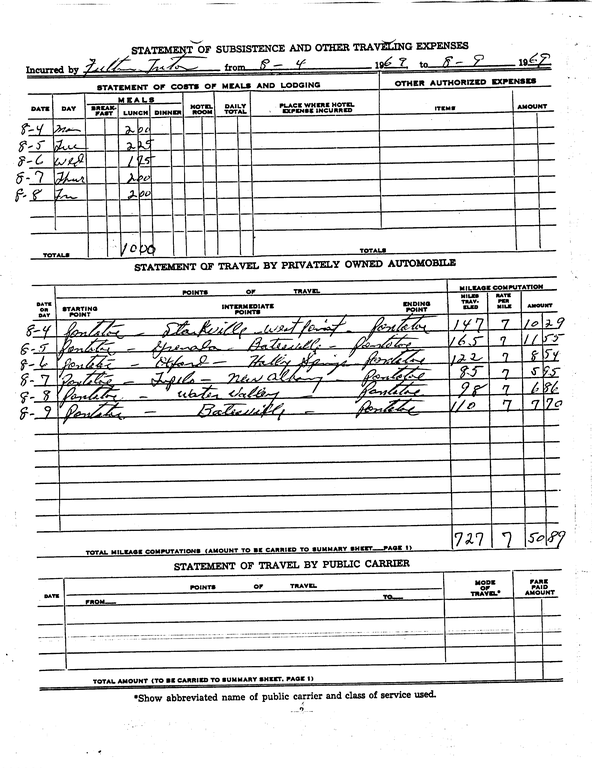 STATEMENT OF SUBSISTENCE AND OTHER TRAVELING EXPENSES
Incurred by Fulton Tutor from 8-4 1969 to 8-9 1969
STATEMENT OF COSTS OF MEALS AND LODGING OTHER AUTHORIZED EXPENSES
MEALS
DATE DAY BREAK-FAST LUNCH DINNER HOTEL ROOM DAILY TOTAL PLACE WHERE HOTEL EXPENSE INCURRED ITEMS AMOUNT
8-4 Mon 2 00
8-5 Tue 2 25
8-6 Wed 1 75
8-7 Thur 2 00
8-8 Fri 2 00
TOTALS 10 00 TOTALS
STATEMENT OF TRAVEL BY PRIVATELY OWNED AUTOMOBILE
POINTS OF TRAVEL MILEAGE COMPUTATION
DATE OR DAY STARTING POINT INTERMEDIATE POINTS ENDING POINT MILES TRAV-ELED RATE PER MILE AMOUNT
8-4 Pontotoc - Starkville - West Point - Pontotoc 147 7 10 29
8-5 Pontotoc - Grenada - Batesville - Pontotoc 165 7 11 55
8-6 Pontotoc - Oxford - Holly Springs Pontotoc 122 7 8 54
8-7 Pontotoc - Tupelo - New Albany Pontotoc 85 7 5 95
8-8 Pontotoc - Water Valley - Pontotoc 98 7 6 86
8-9 Pontotoc - Batesville - Pontotoc 110 7 7 70
TOTAL MILEAGE COMPUTATIONS (AMOUNT TO BE CARRIED TO SUMMARY SHEET—PAGE 1) 727 7 50 89
STATEMENT OF TRAVEL BY PUBLIC CARRIER
DATE POINTS OF TRAVEL MODE OF TRAVEL* FARE PAID AMOUNT
FROM— TO—
TOTAL AMOUNT (TO BE CARRIED TO SUMMARY SHEET, PAGE 1)
*Show abbreviated name of public carrier and class of service used.